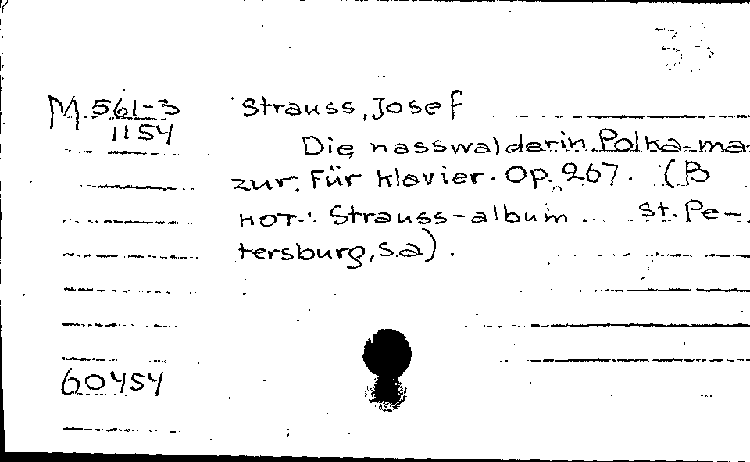 33
M.561-3
1154
Strauss, Josef
Die nasswalderin. Polka-ma-
zur. Für Klavier. Op. 267. (В
нот.: Strauss-album... St. Pe-
tersburg, s.a).
60454